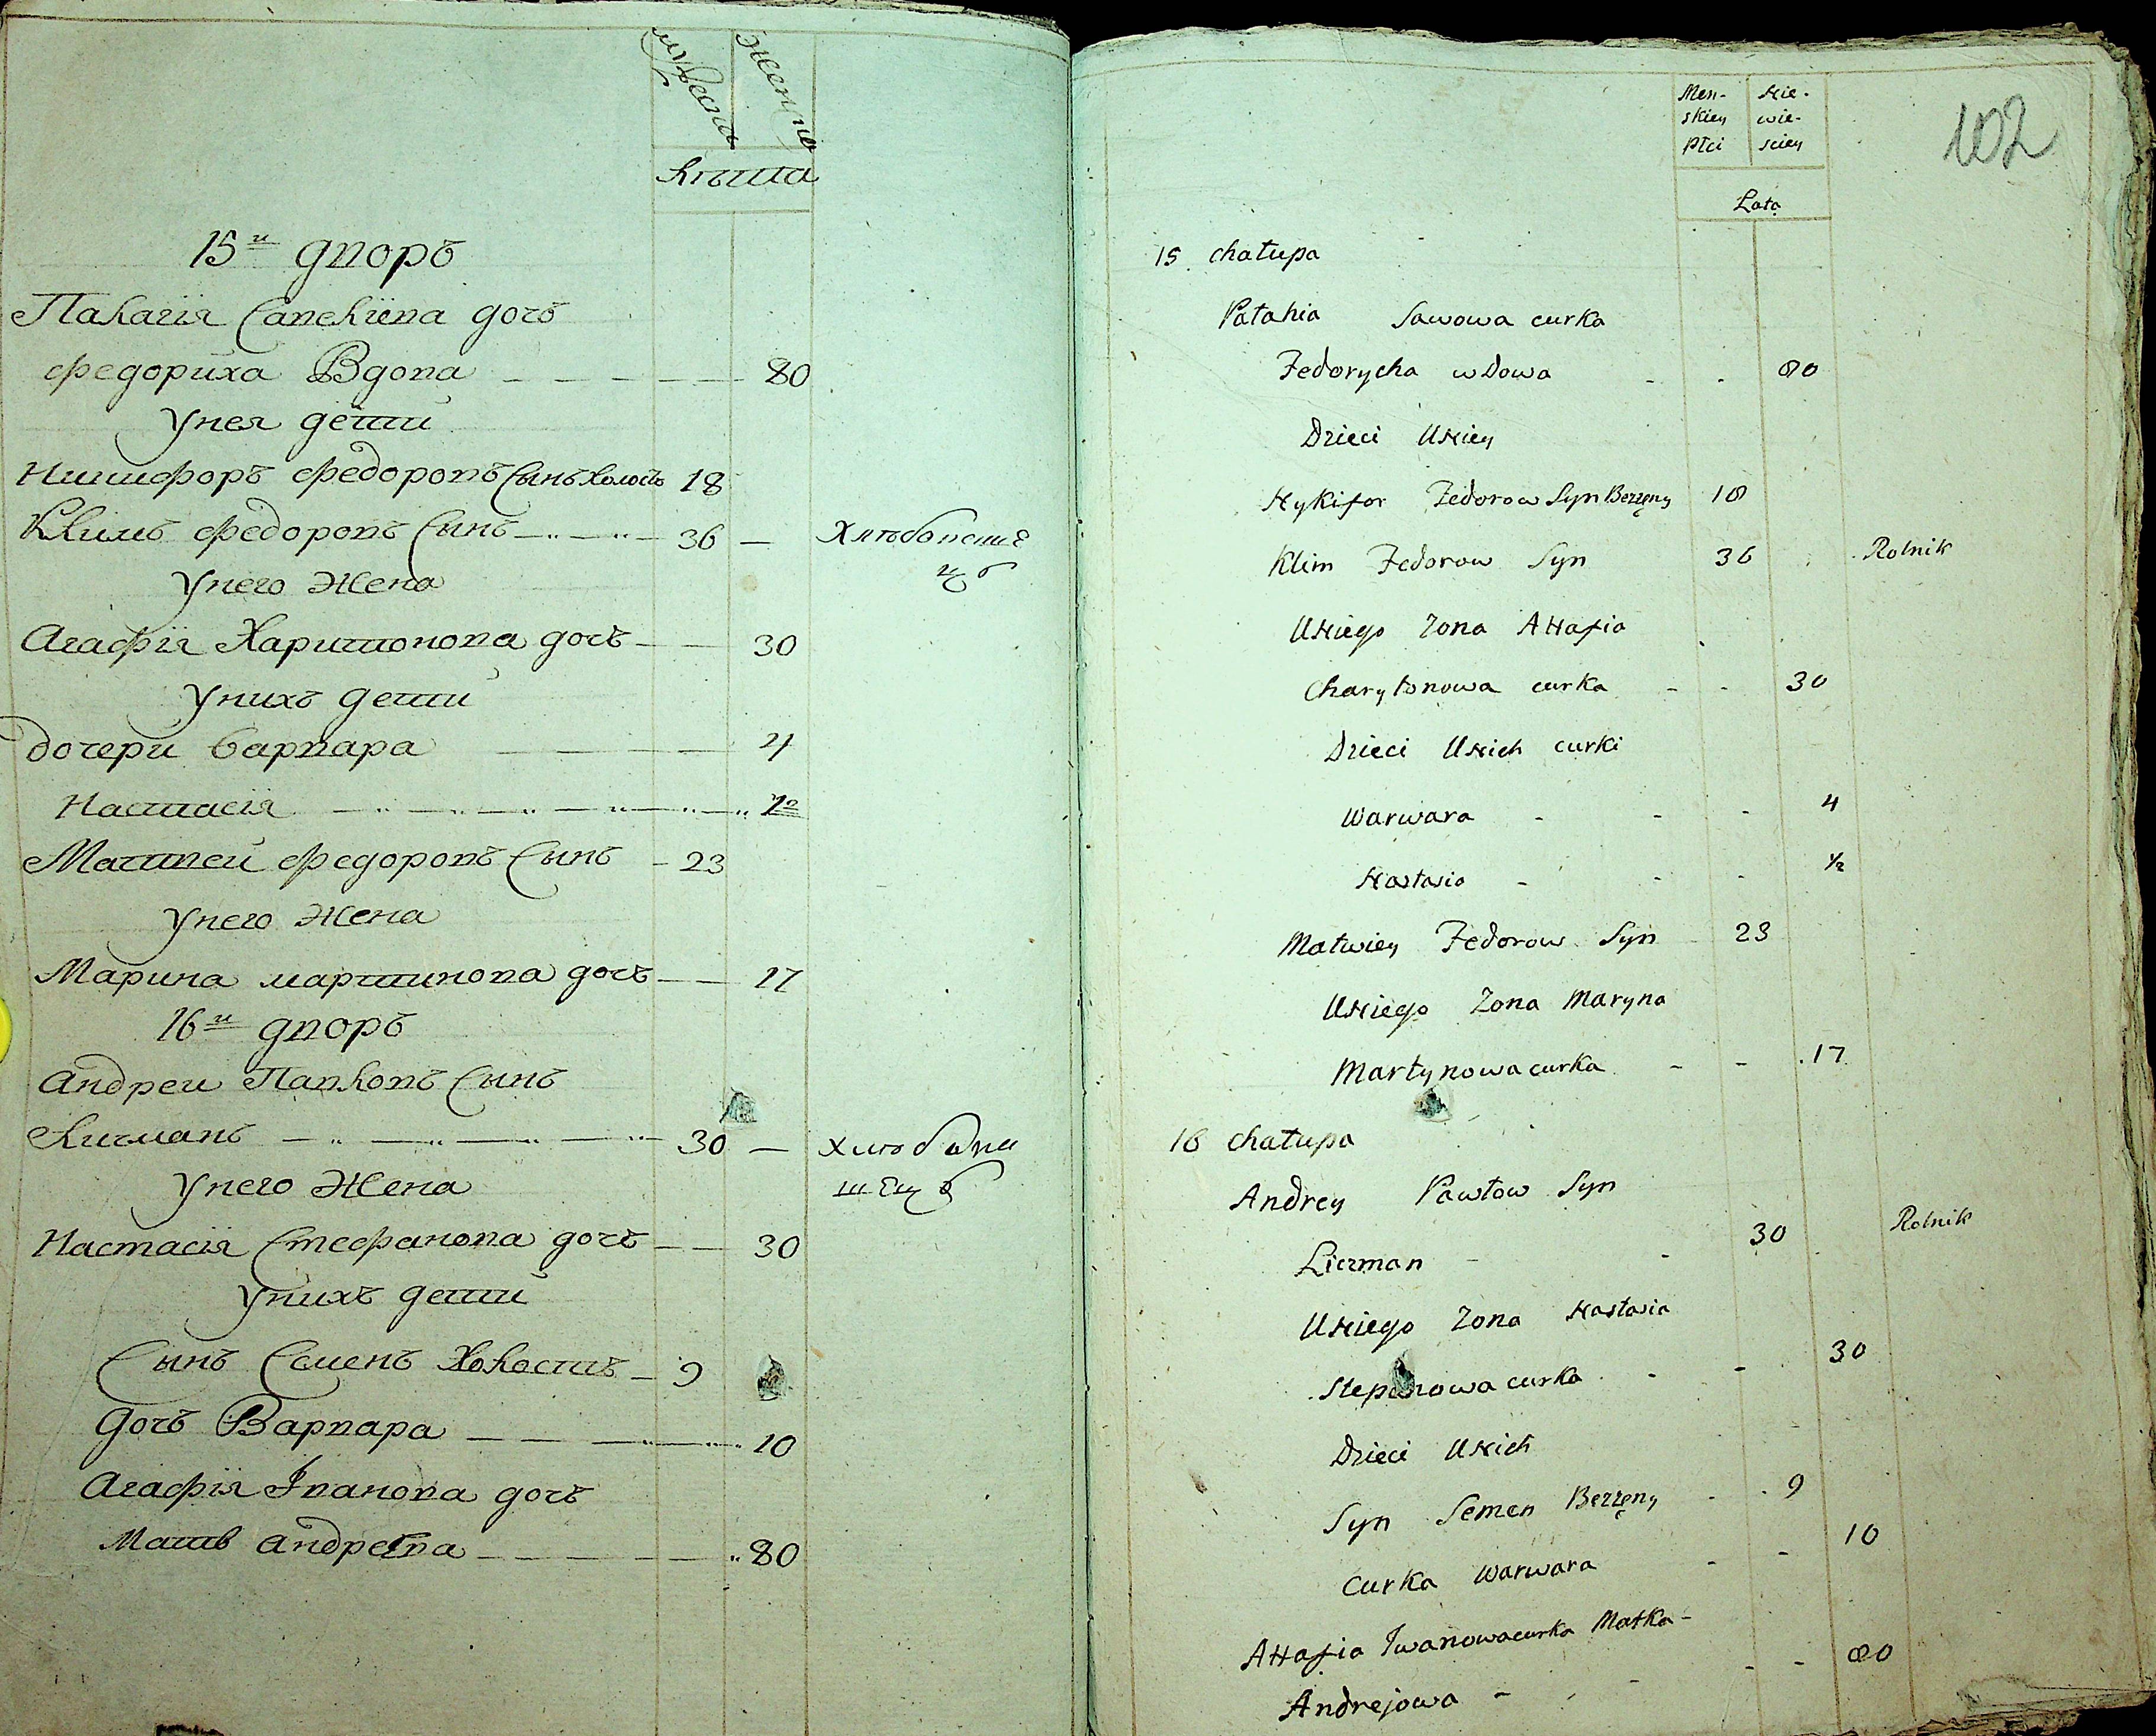 мужеска
женско
лѣта
15й дворъ
Палагія Савелиева дочъ
федориха Вдова 80
У нея дети
Никифоръ федоровъ Сынъ холостъ 18
Климъ федоровъ Сынъ 36 Хлѣбопаше
цъ
У него Жена
Агафія Харитонова дочъ 30
У нихъ дети
дочери варвара 4
Настасія ½
Матвей федоровъ Сынъ 23
У него Жена
Марина мартинова дочъ 17
16й дворъ
Андреи Павловъ Сынъ
Личманъ 30 Хлѣбопа
шецъ
У него Жена
Настасія Стефанова дочъ 30
У нихъ дети
Сынъ Семенъ Холостъ 9
дочъ Варвара 10
Агафія Іванова дочъ
Матъ андреева 80
102
Men- Nie-
skiey wie-
Płci sciey
Lata
15 chałupa
Pałahia Sawowa curka
Fedorycha wdowa 80
Dzieci Uniey
Nykifor Fedorow Syn Bezżęny 18
Klim Fedorow Syn 36 Rolnik
Uniego Zona Ahafia
Charytonowa curka 30
Dzieci Unich curki
Warwara 4
Nastasia ½
Matwiey Fedorow Syn 23
Uniego Zona Maryna
Martynowa curka 17
16 chałupa
Andrey Pawłow Syn
Liczman 30 Rolnik
Uniego Zona Nastasia
Stepanowa curka 30
Dzieci Unich
Syn Semen Bezżęny 9
Curka Warwara 10
Ahafia Iwanowa curka Matka
Andrejowa 80